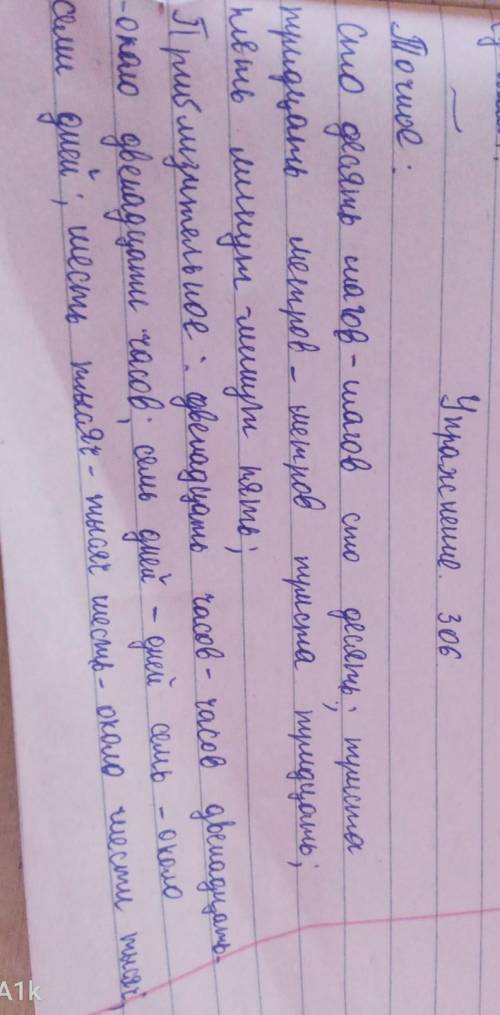 Упражнение. 306
Точное:
Сто десять шагов - шагов сто десять; триста
тридцать метров - метров триста тридцать;
пять минут - минут пять;
Приблизительное: двенадцать часов - часов двенадцать -
- около двенадцати часов; семь дней - дней семь - около
семи дней; шесть тысяч - тысяч шесть - около шести тысяч;
A1k